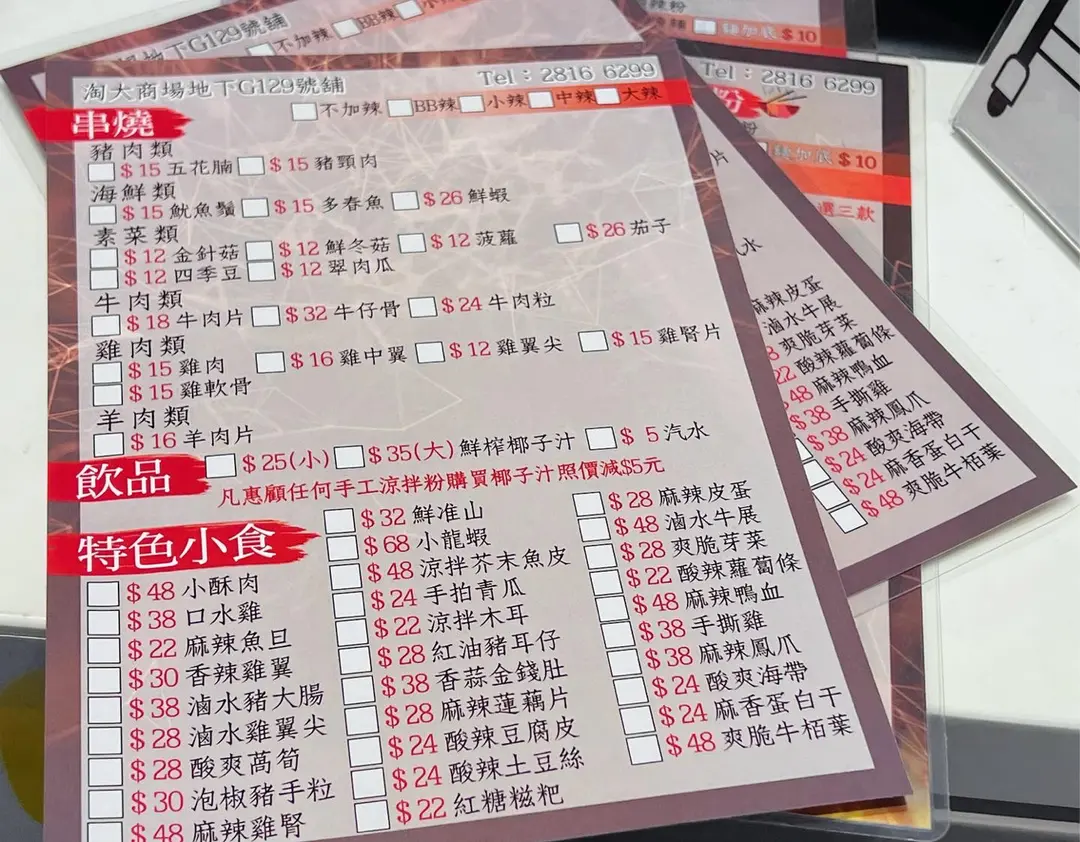 淘大商場地下G129號舖 Tel：2816 6299
不加辣 BB辣 小辣 中辣 大辣
串燒
豬肉類
$15 五花腩 $15 豬頸肉
海鮮類
$15 魷魚鬚 $15 多春魚 $26 鮮蝦
素菜類
$12 金針菇 $12 鮮冬菇 $12 菠蘿 $26 茄子
$12 四季豆 $12 翠肉瓜
牛肉類
$18 牛肉片 $32 牛仔骨 $24 牛肉粒
雞肉類
$15 雞肉 $16 雞中翼 $12 雞翼尖 $15 雞腎片
$15 雞軟骨
羊肉類
$16 羊肉片
飲品
$25(小) $35(大) 鮮榨椰子汁 $5 汽水
凡惠顧任何手工涼拌粉購買椰子汁照價減$5元
特色小食
$48 小酥肉
$38 口水雞
$22 麻辣魚旦
$30 香辣雞翼
$38 滷水豬大腸
$28 滷水雞翼尖
$28 酸爽萵筍
$30 泡椒豬手粒
$48 麻辣雞腎
$32 鮮准山
$68 小龍蝦
$48 涼拌芥末魚皮
$24 手拍青瓜
$22 涼拌木耳
$28 紅油豬耳仔
$38 香蒜金錢肚
$28 麻辣蓮藕片
$24 酸辣豆腐皮
$24 酸辣土豆絲
$22 紅糖糍粑
$28 麻辣皮蛋
$48 滷水牛展
$28 爽脆芽菜
$22 酸辣蘿蔔條
$48 麻辣鴨血
$38 手撕雞
$38 麻辣鳳爪
$24 酸爽海帶
$24 麻香蛋白干
$48 爽脆牛栢葉
地下G129號舖
不加辣 BB辣
辣粉
麵加底 $10
Tel：2816 6299
粉
麵加底 $10
選三款
片
水
麻辣皮蛋
滷水牛展
8 爽脆芽菜
22 酸辣蘿蔔條
48 麻辣鴨血
$38 手撕雞
$38 麻辣鳳爪
$24 酸爽海帶
$24 麻香蛋白干
$48 爽脆牛栢葉